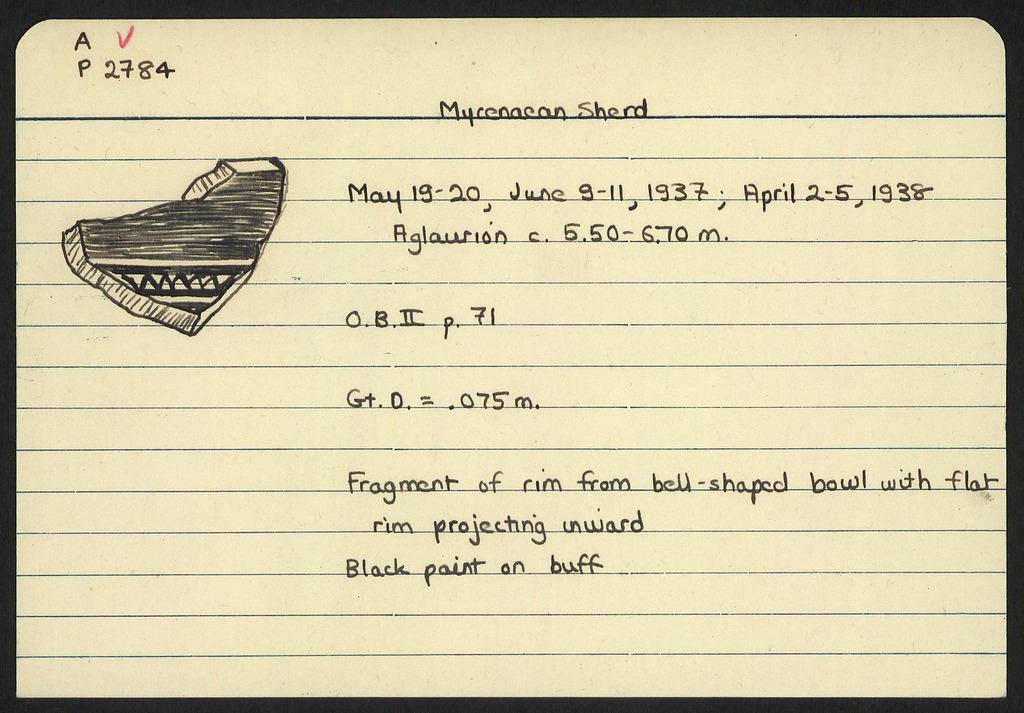 A ✓
P 2784
Mycenaean Sherd
May 19-20, June 9-11, 1937; April 2-5, 1938
Aglaurion c. 5.50-6.70 m.
O.B.II p. 71
Gt. D. = .075 m.
Fragment of rim from bell-shaped bowl with flat
rim projecting inward
Black paint on buff